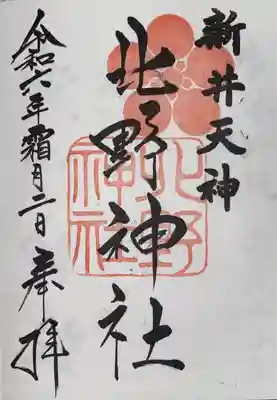 新井天神
北野神社
北野神社
令和六年霜月二日奉拝